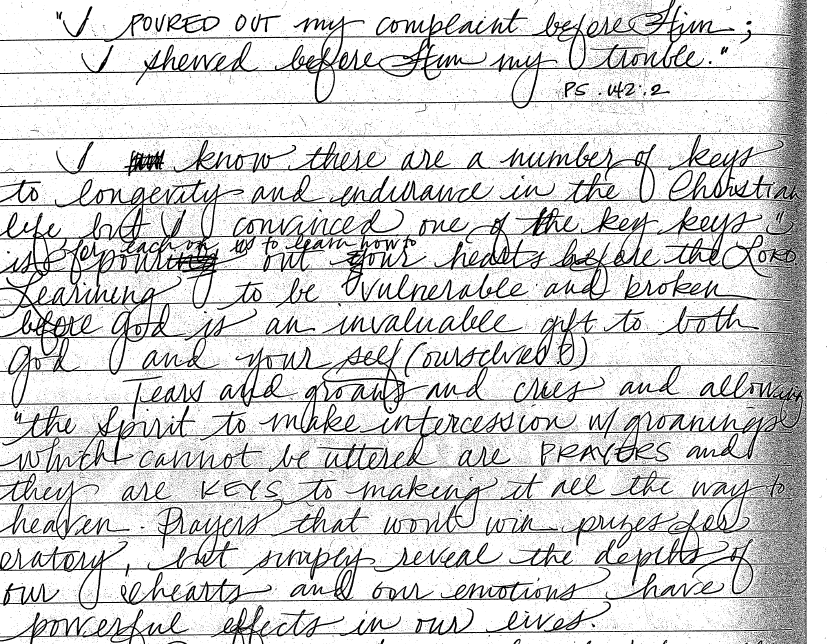 "I POURED OUT my complaint before Him;
I shewed before Him my trouble."
PS. 142:2
I know there are a number of keys
to longevity and endurance in the Christian
life but I convinced one of the key keys
for each on us to learn how to
is pour out our hearts before the LORD.
Learining to be vulnerable and broken
before God is an invaluable gift to both
God and your self (ourselves)
Tears and groans and cries and allowing
"the Spirit to make intercession w/ groanings
which cannot be uttered are PRAYERS and
they are KEYS to making it all the way to
heaven. Prayers that wont win prizes for
oratory, but simply reveal the depths of
our hearts and our emotions have
powerful effects in our lives.